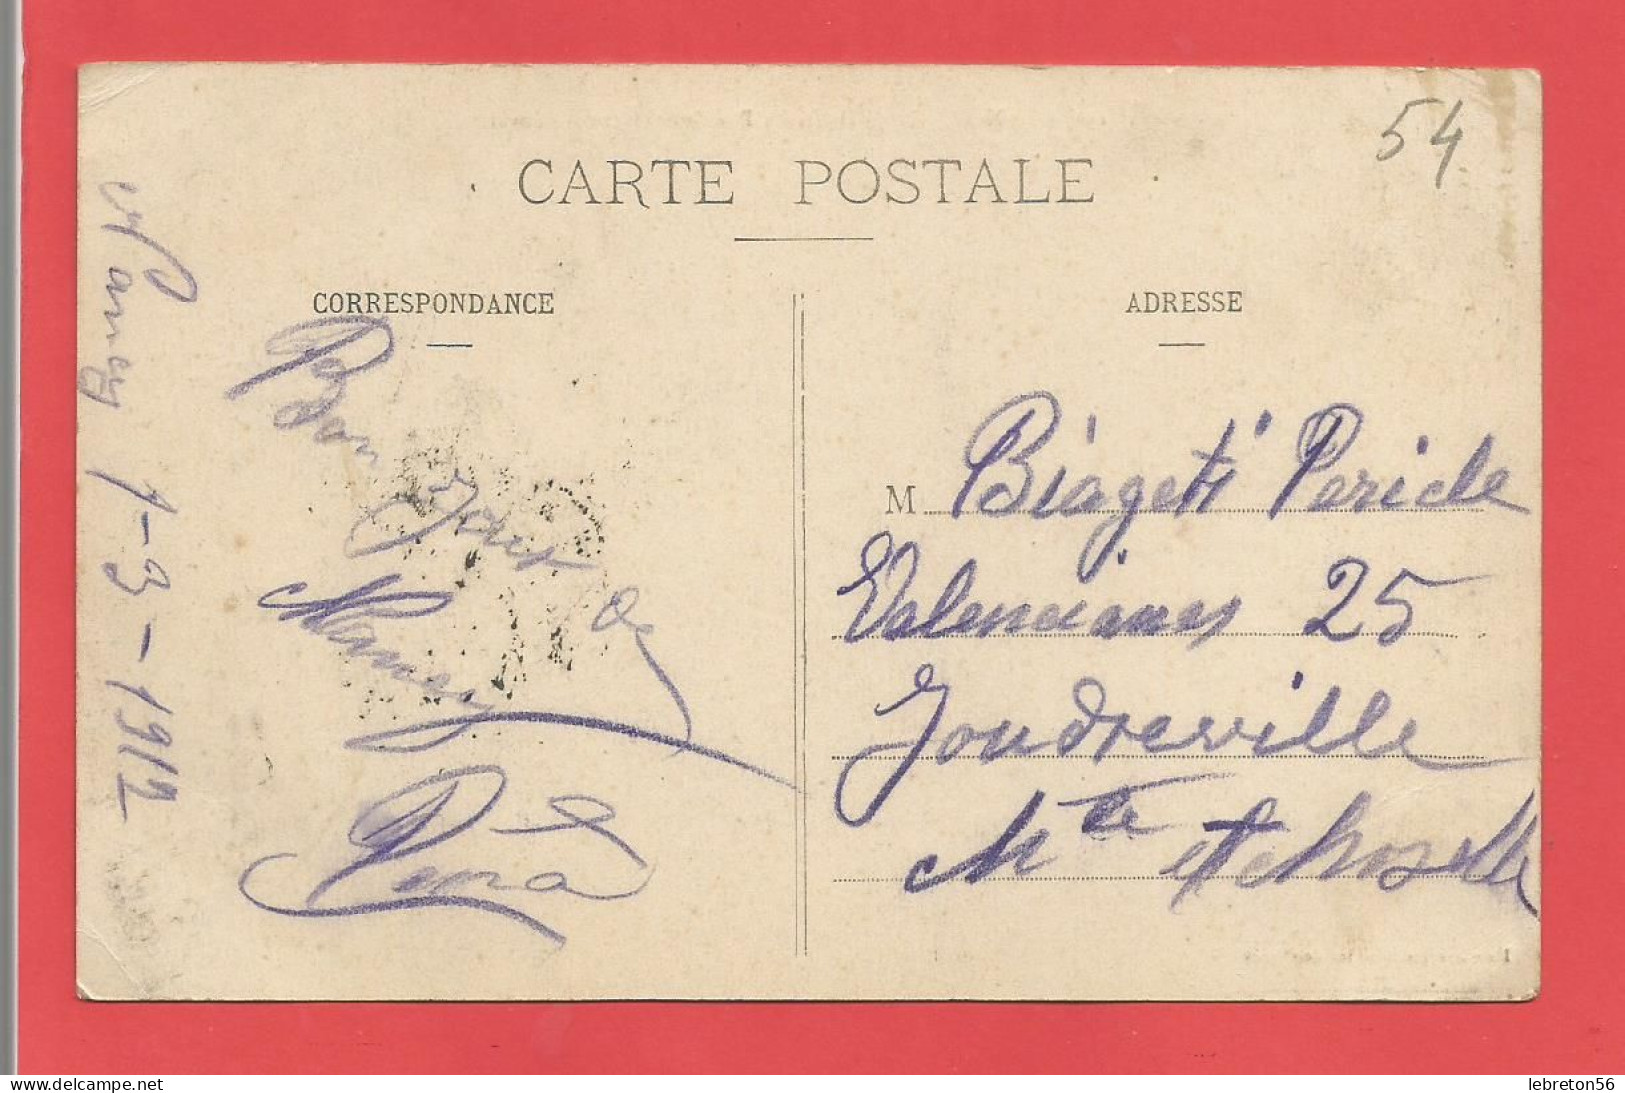 54
CARTE POSTALE
CORRESPONDANCE
ADRESSE
Nancy 1-3-1912
Bon Jour de
Nancy
M Biageti Pericle
Valenciennes 25
Joudreville
Mte et Moselle
lebreton56